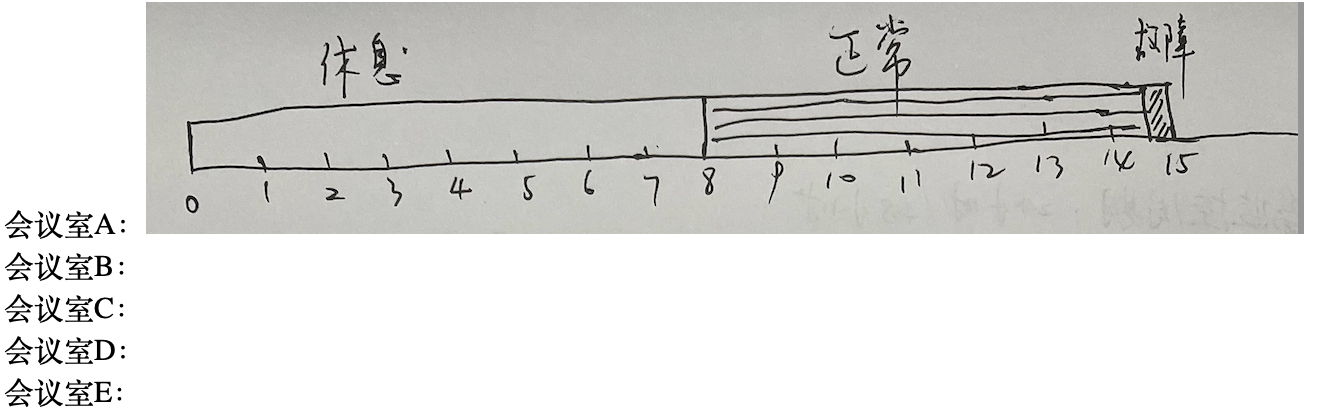 休息 正常 故障
0 1 2 3 4 5 6 7 8 9 10 11 12 13 14 15
会议室A：
会议室B：
会议室C：
会议室D：
会议室E：